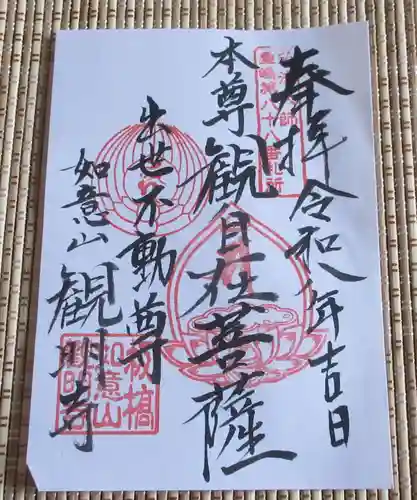 奉拝 令和八年吉日
本尊 観自在菩薩
出世不動尊
如意山 観明寺
板橋
如意山
観明寺